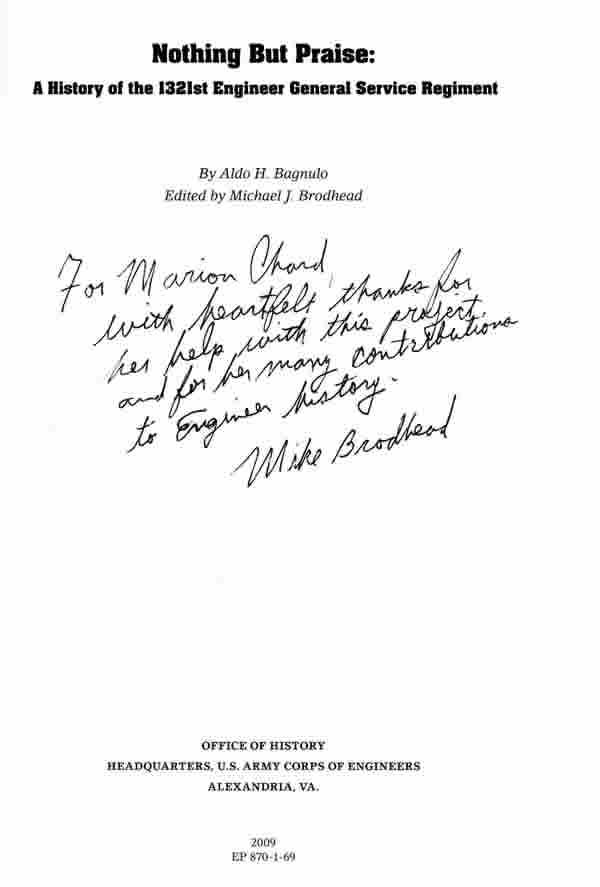 Nothing But Praise:
A History of the 1321st Engineer General Service Regiment
By Aldo H. Bagnulo
Edited by Michael J. Brodhead
For Marion Chard
with heartfelt thanks for
her help with this project,
and for her many contributions
to Engineer history.
Mike Brodhead
OFFICE OF HISTORY
HEADQUARTERS, U.S. ARMY CORPS OF ENGINEERS
ALEXANDRIA, VA.
2009
EP 870-1-69